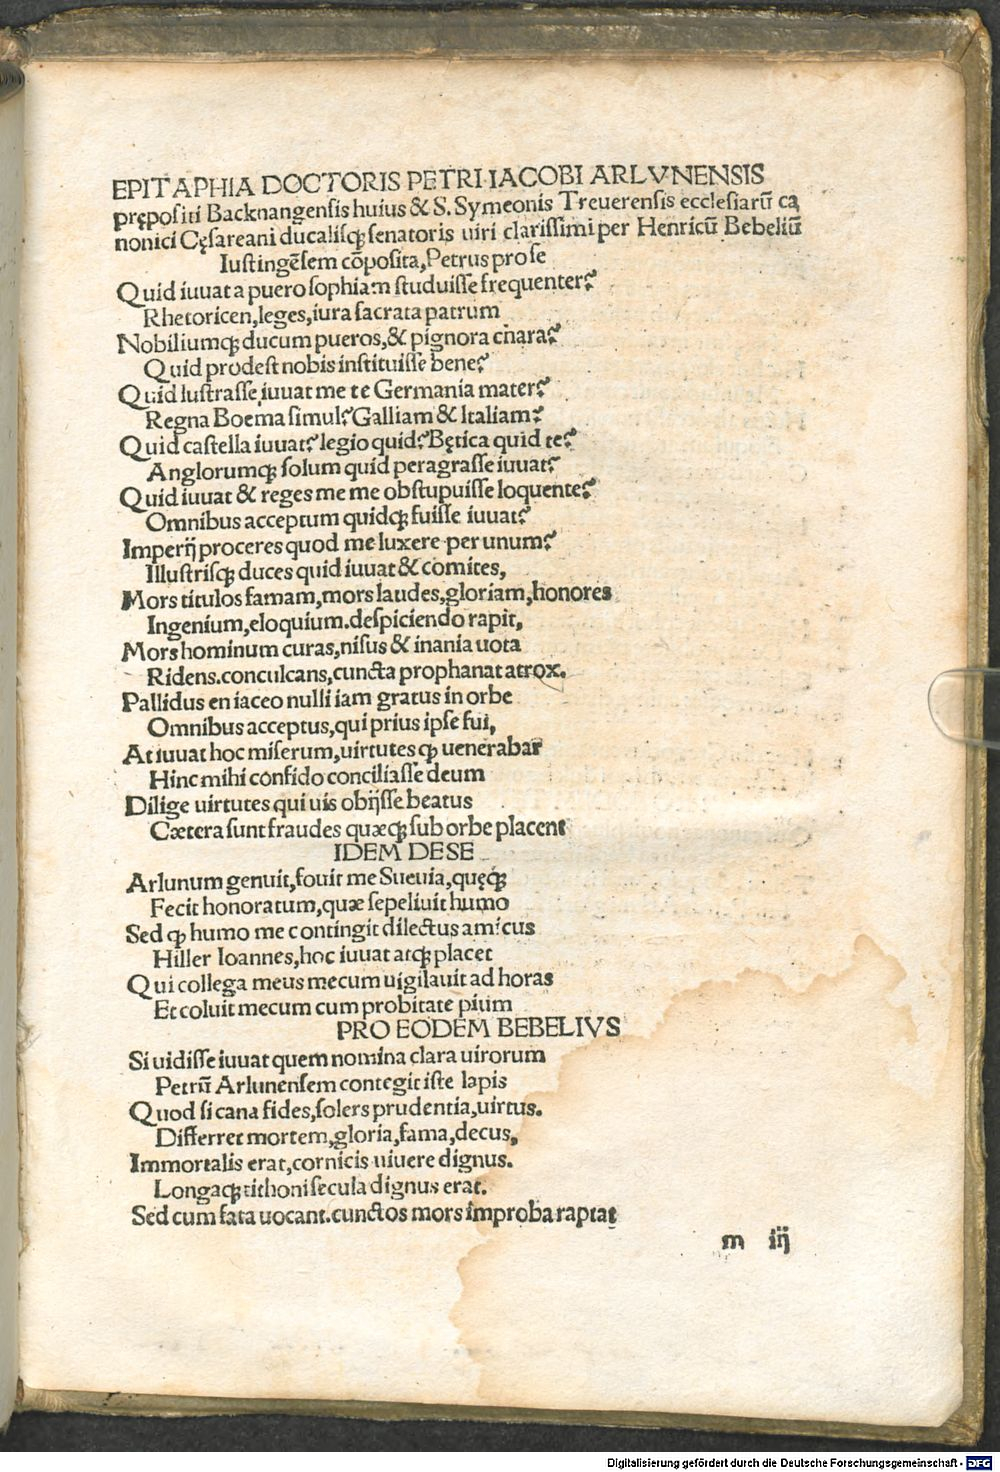 EPITAPHIA DOCTORIS PETRI IACOBI ARLVNENSIS
prępositi Backnangensis huius & S. Symeonis Treuerensis ecclesiarū ca
nonici Cęsareani ducalisqꝫ senatoris uiri clarissimi per Henricū Bebeliū
Iustingēsem cōposita, Petrus pro se
Quid iuuat a puero sophiam studuisse frequenter?
Rhetoricen, leges, iura sacrata patrum
Nobiliumqꝫ ducum pueros, & pignora chara?
Quid prodest nobis instituisse bene?
Quid lustrasse iuuat me te Germania mater?
Regna Boema simul? Galliam & Italiam?
Quid castella iuuat? legio quid? Bętica quid te?
Anglorumqꝫ solum quid peragrasse iuuat?
Quid iuuat & reges me me obstupuisse loquente?
Omnibus acceptum quidqꝫ fuisse iuuat?
Imperij proceres quod me luxere per unum?
Illustrisqꝫ duces quid iuuat & comites,
Mors titulos famam, mors laudes, gloriam, honores
Ingenium, eloquium. despiciendo rapit,
Mors hominum curas, nisus & inania uota
Ridens. conculcans, cuncta prophanat atrox.
Pallidus en iaceo nulli iam gratus in orbe
Omnibus acceptus, qui prius ipse fui,
At iuuat hoc miserum, uirtutes ꝙ uenerabar
Hinc mihi confido conciliasse deum
Dilige uirtutes qui uis obijsse beatus
Cætera sunt fraudes quæqꝫ sub orbe placent
IDEM DE SE
Arlunum genuit, fouit me Sueuia, quęqꝫ
Fecit honoratum, quæ sepeliuit humo
Sed ꝙ humo me contingit dilectus amicus
Hiller Ioannes, hoc iuuat atqꝫ placet
Qui collega meus mecum uigilauit ad horas
Et coluit mecum cum probitate pium
PRO EODEM BEBELIVS
Si uidisse iuuat quem nomina clara uirorum
Petrū Arlunensem contegit iste lapis
Quod si cana fides, solers prudentia, uirtus.
Differret mortem, gloria, fama, decus,
Immortalis erat, cornicis uiuere dignus.
Longaqꝫ tithoni secula dignus erat.
Sed cum fata uocant. cunctos mors improba raptat
m iij
Digitalisierung gefördert durch die Deutsche Forschungsgemeinschaft - DFG